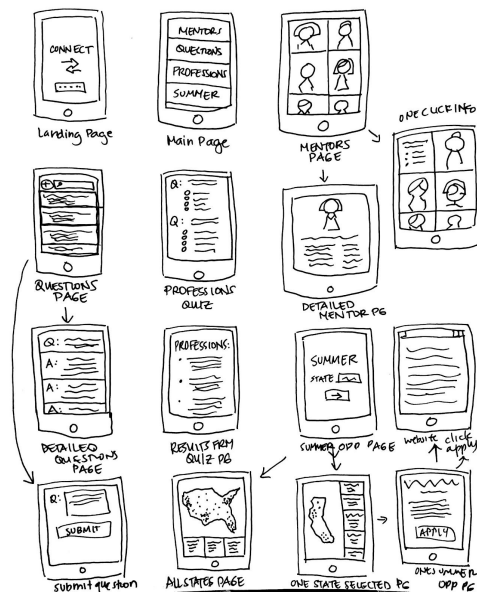 CONNECT
Landing Page
MENTORS
QUESTIONS
PROFESSIONS
SUMMER
Main Page
MENTORS
PAGE
ONE CLICK INFO
QUESTIONS
PAGE
Q:
Q:
PROFESSIONS
QUIZ
DETAILED
MENTOR PG
Q:
A:
A:
A:
DETAILED
QUESTIONS
PAGE
PROFESSIONS:
RESULTS FRM
QUIZ PG
SUMMER
STATE
SUMMER OPP PAGE
website click
apply
Q:
SUBMIT
Submit question
ALL STATES PAGE
ONE STATE SELECTED PG
APPLY
OPP PG